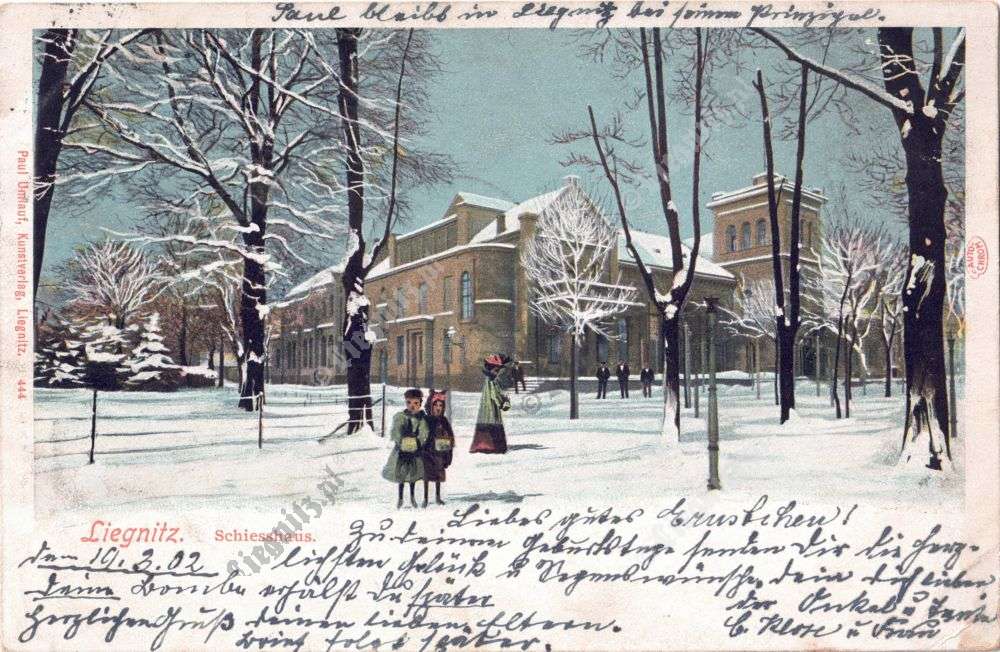 Paul bleibt in Liegnitz bei seinem Prinzipal.
Paul Umlauf, Kunstverlag, Liegnitz. 444
AUTO
CHROM
Liegnitz. Schiesshaus.
den 19.3.02
Liebes gutes Ernstchen!
Zu Deinem Geburtstage senden Dir die herz-
lichsten Glück u Segenswünsche, dein dich lieben
der Onkel u Tante
C. Klose u Frau
Deine Bombe erhälst Du später
Herzlichen Gruß deinen lieben Eltern.
Brief folgt später.
liegnitz.pl